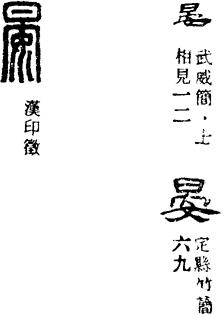 晏
武威簡·士
相見一二
晏
定縣竹簡
六九
漢印徵